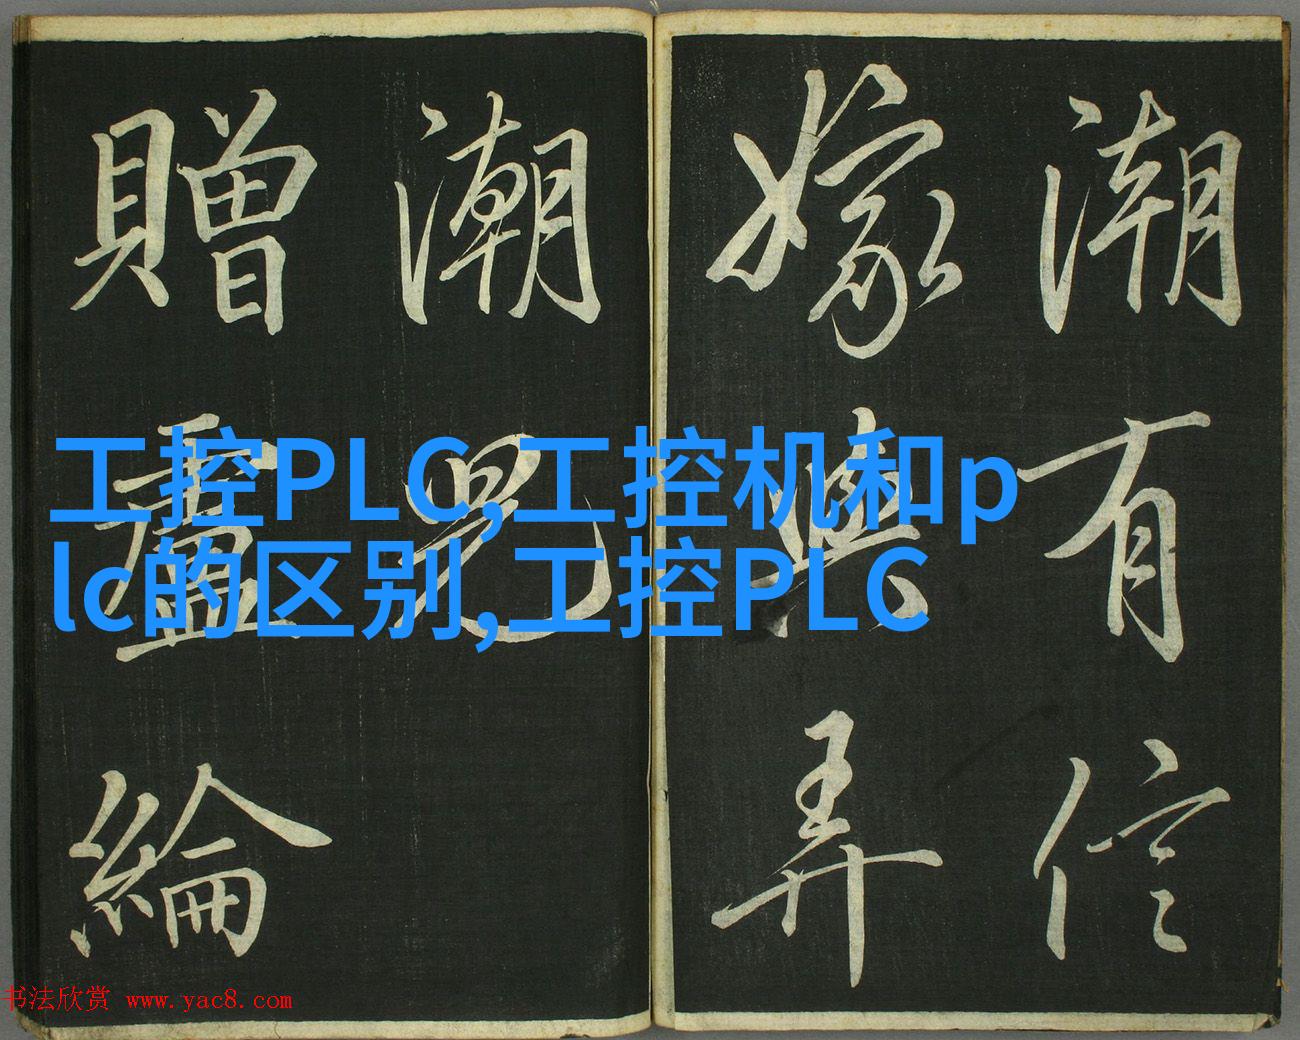 潮有信
嫁與弄
潮兒
贈盧綸
工控PLC,工控机和p
lc的区别,工控PLC
书法欣赏 www.yac8.com